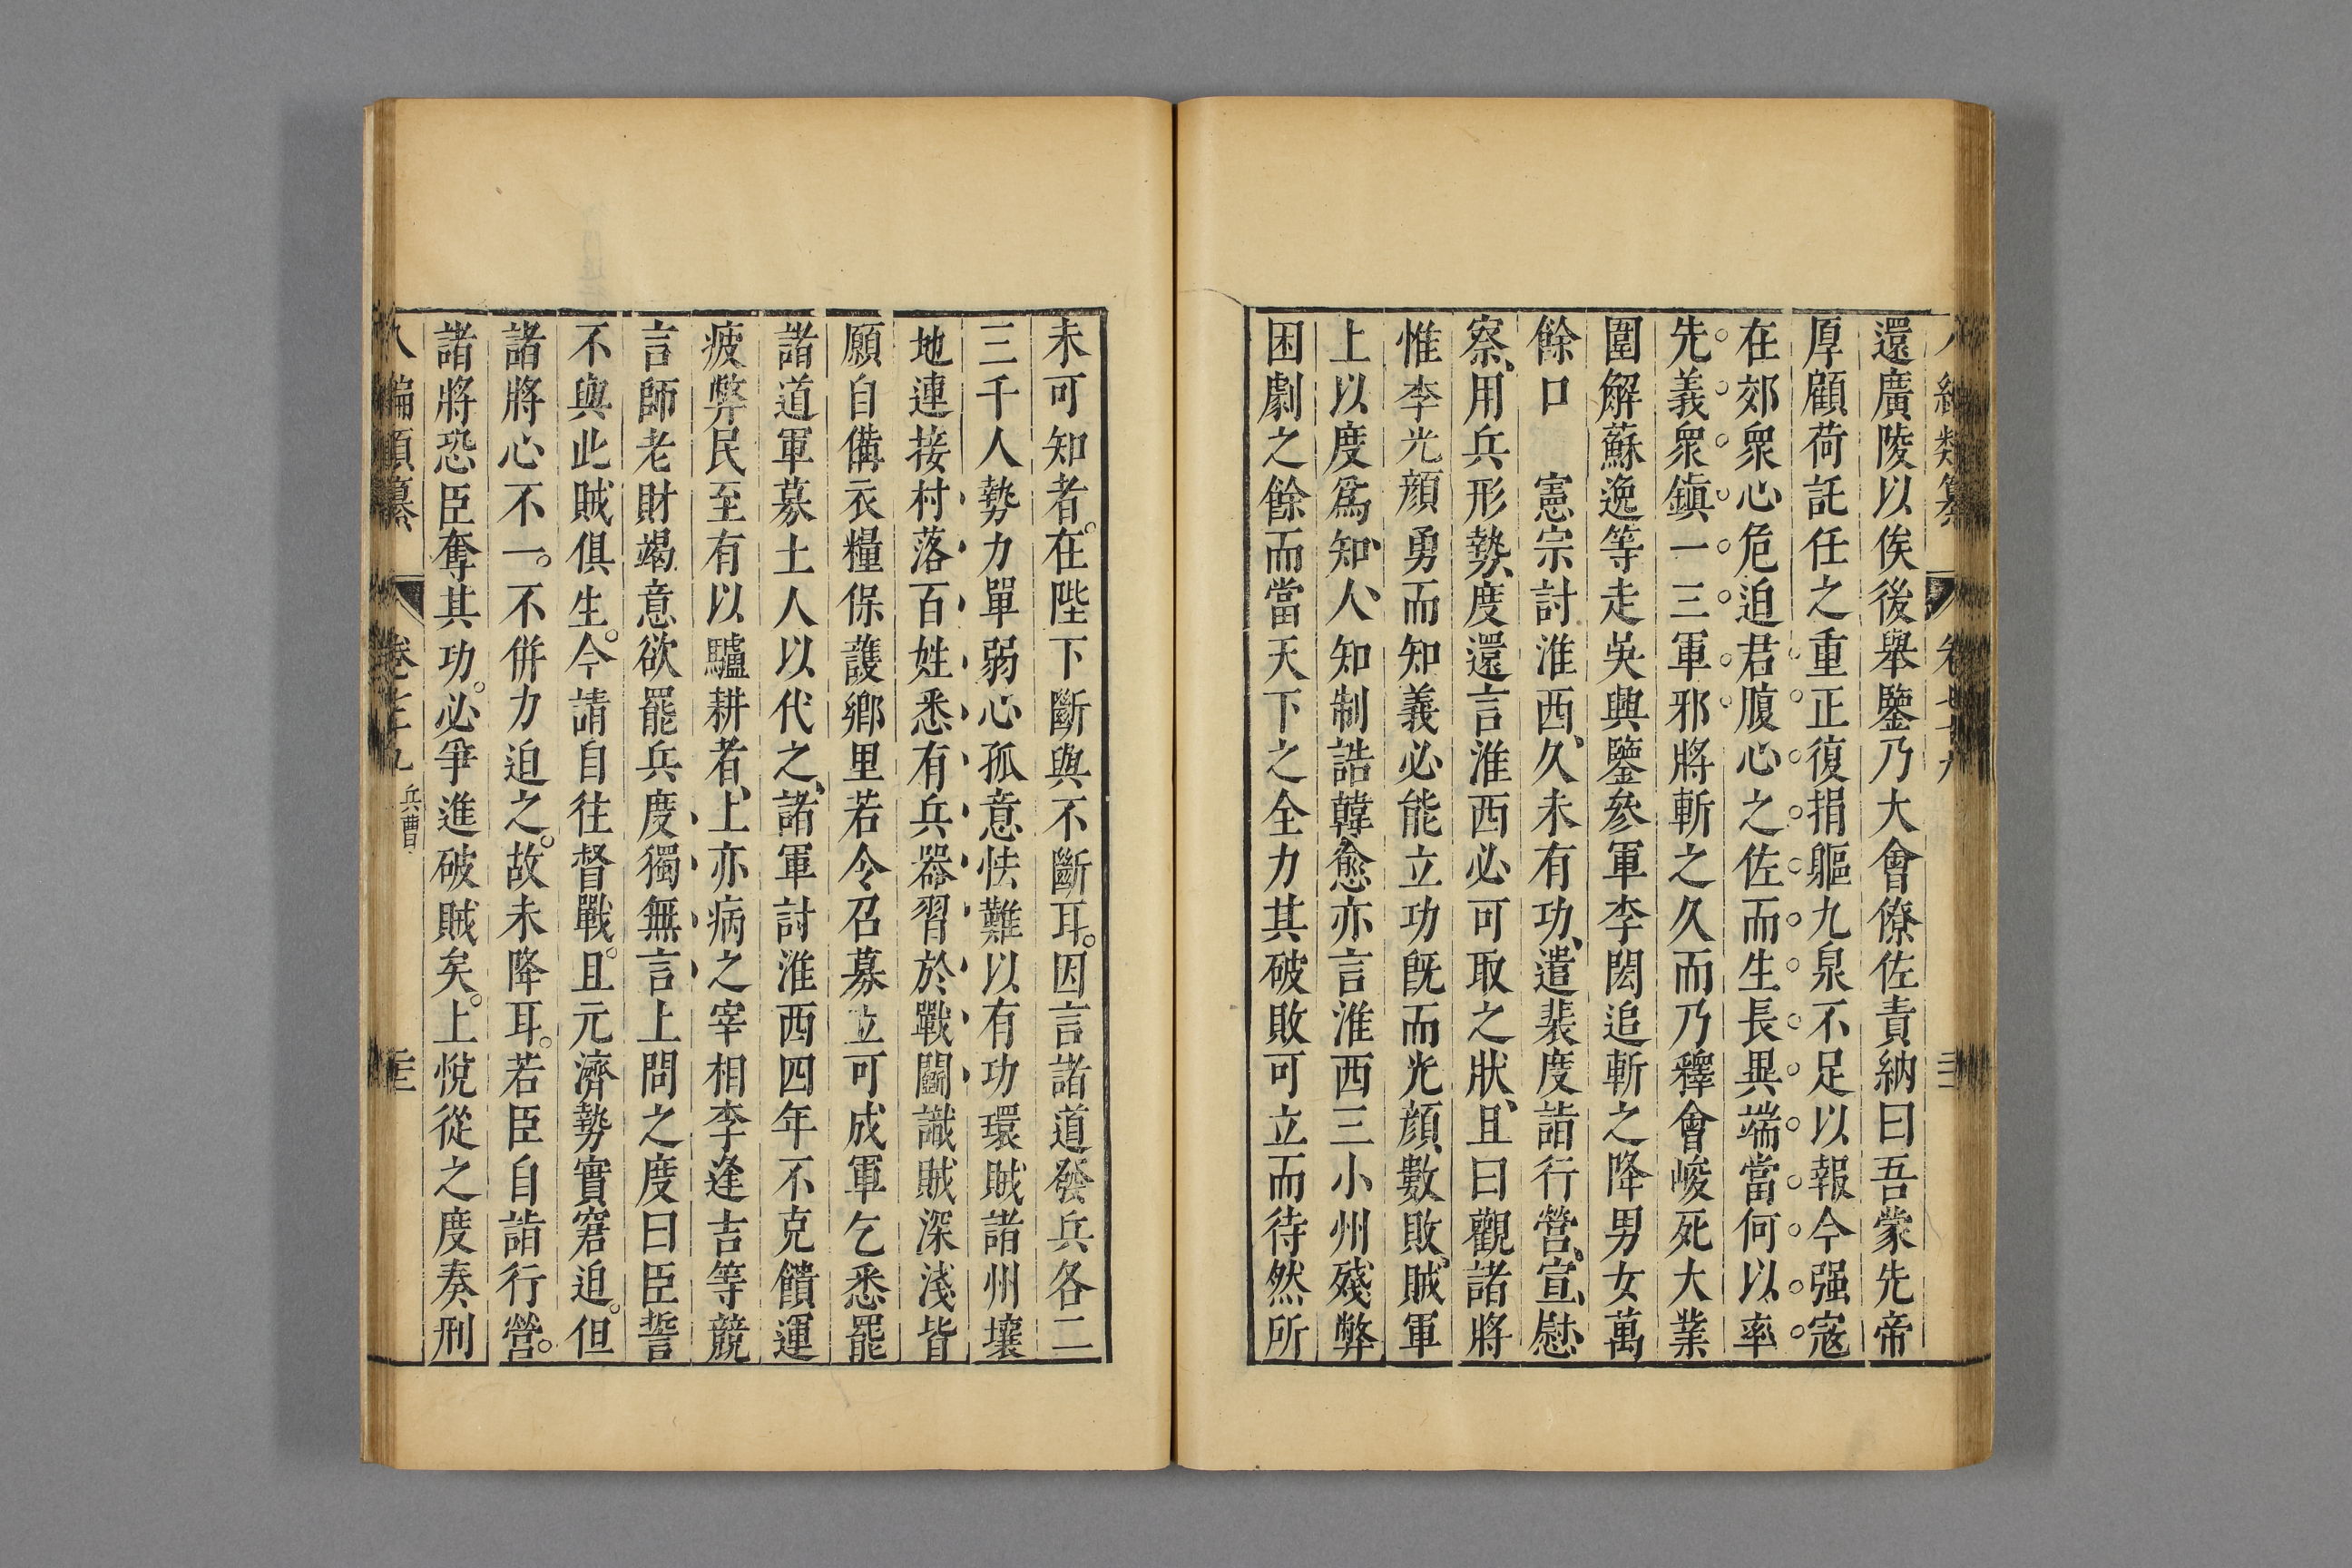 還廣陵以俟後舉鑒乃大會僚佐責納曰吾蒙先帝
厚顧荷託任之重正復捐軀九泉不足以報今强寇
在郊衆心危迫君腹心之佐而生長異端當何以率
先義衆鎮一三軍邪將斬之久而乃釋會峻死大業
圍解蘇逸等走吳興鑒參軍李閎追斬之降男女萬
餘口　憲宗討淮西、久未有功、遣裴度詣行營、宣、慰
察、用兵形勢、度還言淮西必可取之狀、且曰觀諸將
惟李光顔勇而知義必能立功旣而光顔、數敗、賊軍
上以度爲知、人、知制誥韓愈亦言淮西三小州殘弊
困劇之餘而當天下之全力其破敗可立而待然所
未可知者。在陛下斷與不斷耳。因言諸道發兵各二
三千人勢力單弱心孤意怯難以有功環賊諸州壤
地連接村落百姓悉有兵器習於戰鬬識賊深淺皆
願自備衣糧保護鄉里若令召募立可成軍乞悉罷
諸道軍募土人以代之、諸軍討淮西四年不克饋運
疲弊民至有以驢耕者、上亦病之宰相李逢吉等競
言師老財竭意欲罷兵度獨無言上問之度曰臣誓
不與此賊俱生。今請自往督戰。且元濟勢實窘迫。但
諸將心不一。不併力迫之。故未降耳。若臣自詣行營。
諸將恐臣奪其功。必爭進破賊矣。上悅從之度奏刑
兵曹